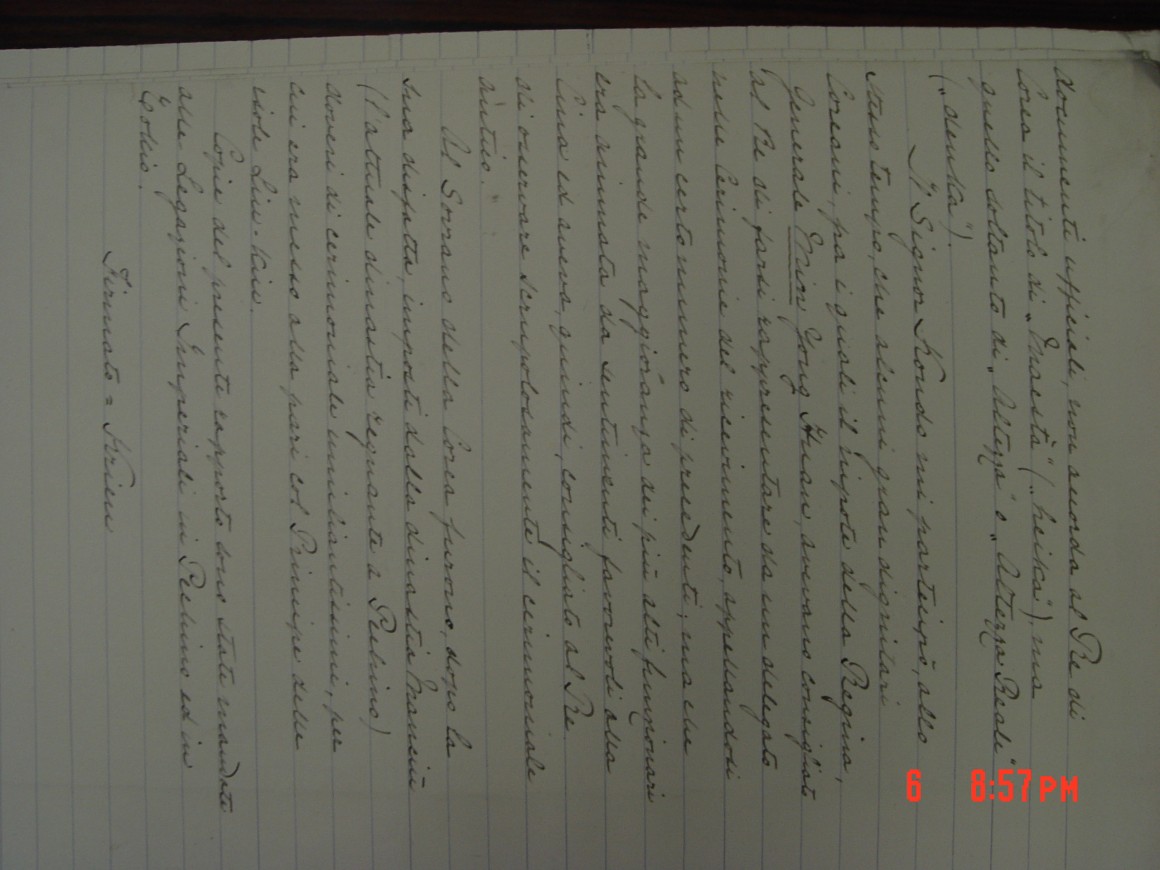 documenti ufficiali, non accorda al Re di
Corea il titolo di „Maestà" („heika"), ma
quello soltanto di „Altezza" o „Altezza Reale"
(„denka").
Il Signor Kondo mi partecipò, allo
stesso tempo, che alcuni gran dignitari
Coreani, fra i quali il Nipote della Regina,
Generale Min Yong Huan, avevano consigliato
al Re di farsi rappresentare da un delegato
nelle Cerimonie del ricevimento, appellandosi
ad un certo numero di precedenti; ma che
la grande maggioranza dei più alti funzionari
era animata da sentimenti favorevoli alla
Cina ed aveva, quindi, consigliato al Re
di osservare scrupolosamente il cerimoniale
antico.
Al Sovrano della Corea furono, dopo la
sua disfatta, imposti dalla dinastia Mansciù
(l'attuale dinastia regnante a Pechino)
doveri di cerimoniale umiliantissimi, per
cui era messo alla pari col Principe delle
isole Liu-Kiu.
Copie del presente rapporto sono state mandate
alle Legazioni Imperiali in Pechino ed in
Tokio.
Firmato = Krien
6 8:57 PM